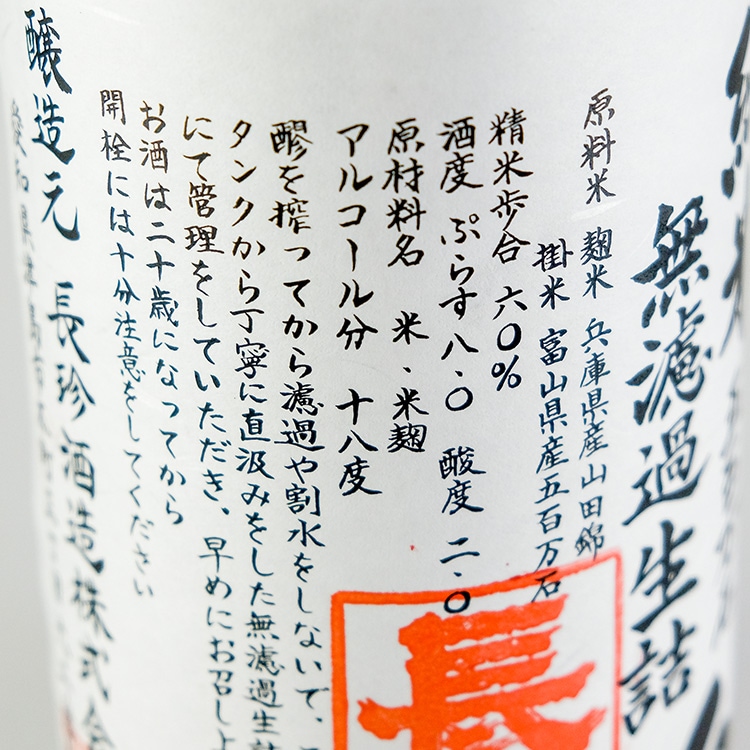 無濾過生詰
原料米 麹米 兵庫県産山田錦
掛米 富山県産五百万石
精米歩合 六〇%
酒度 ぷらす八.〇 酸度 二.〇
原材料名 米・米麹
アルコール分 十八度
醪を搾ってから濾過や割水をしないで、
タンクから丁寧に直汲みをした無濾過生詰
にて管理をしていただき、早めにお召し
お酒は二十歳になってから
開栓には十分注意をしてください
醸造元 長珍酒造株式会
長